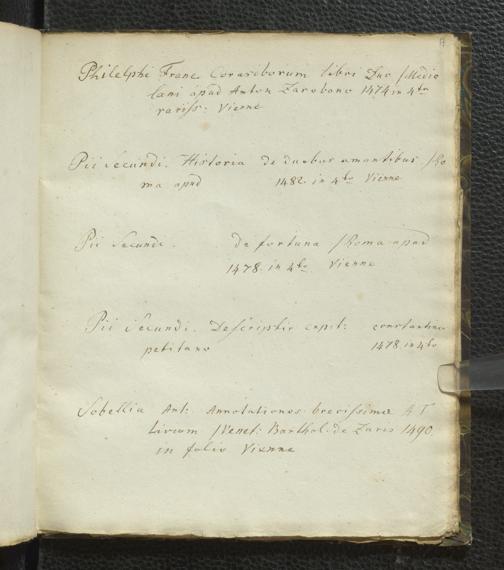 Philelphi Franc Conviviorum libri Duo /Medio
lani apud Anton Zarobono 1474 in 4to
rariss: Vienne
Pii Secundi. Historia de duobus amantibus /Ro
ma apud 1482. in 4to Vienne
Pii Secundi. de fortuna /Roma apud
1478. in 4to Vienne
Pii Secundi. Descriptio capt: constantino
politano 1478. in 4to
Sobellia Ant: Annotationes brevissimae AT
Livium /Venet: Barthol: de Zaris 1490
in folio Vienne